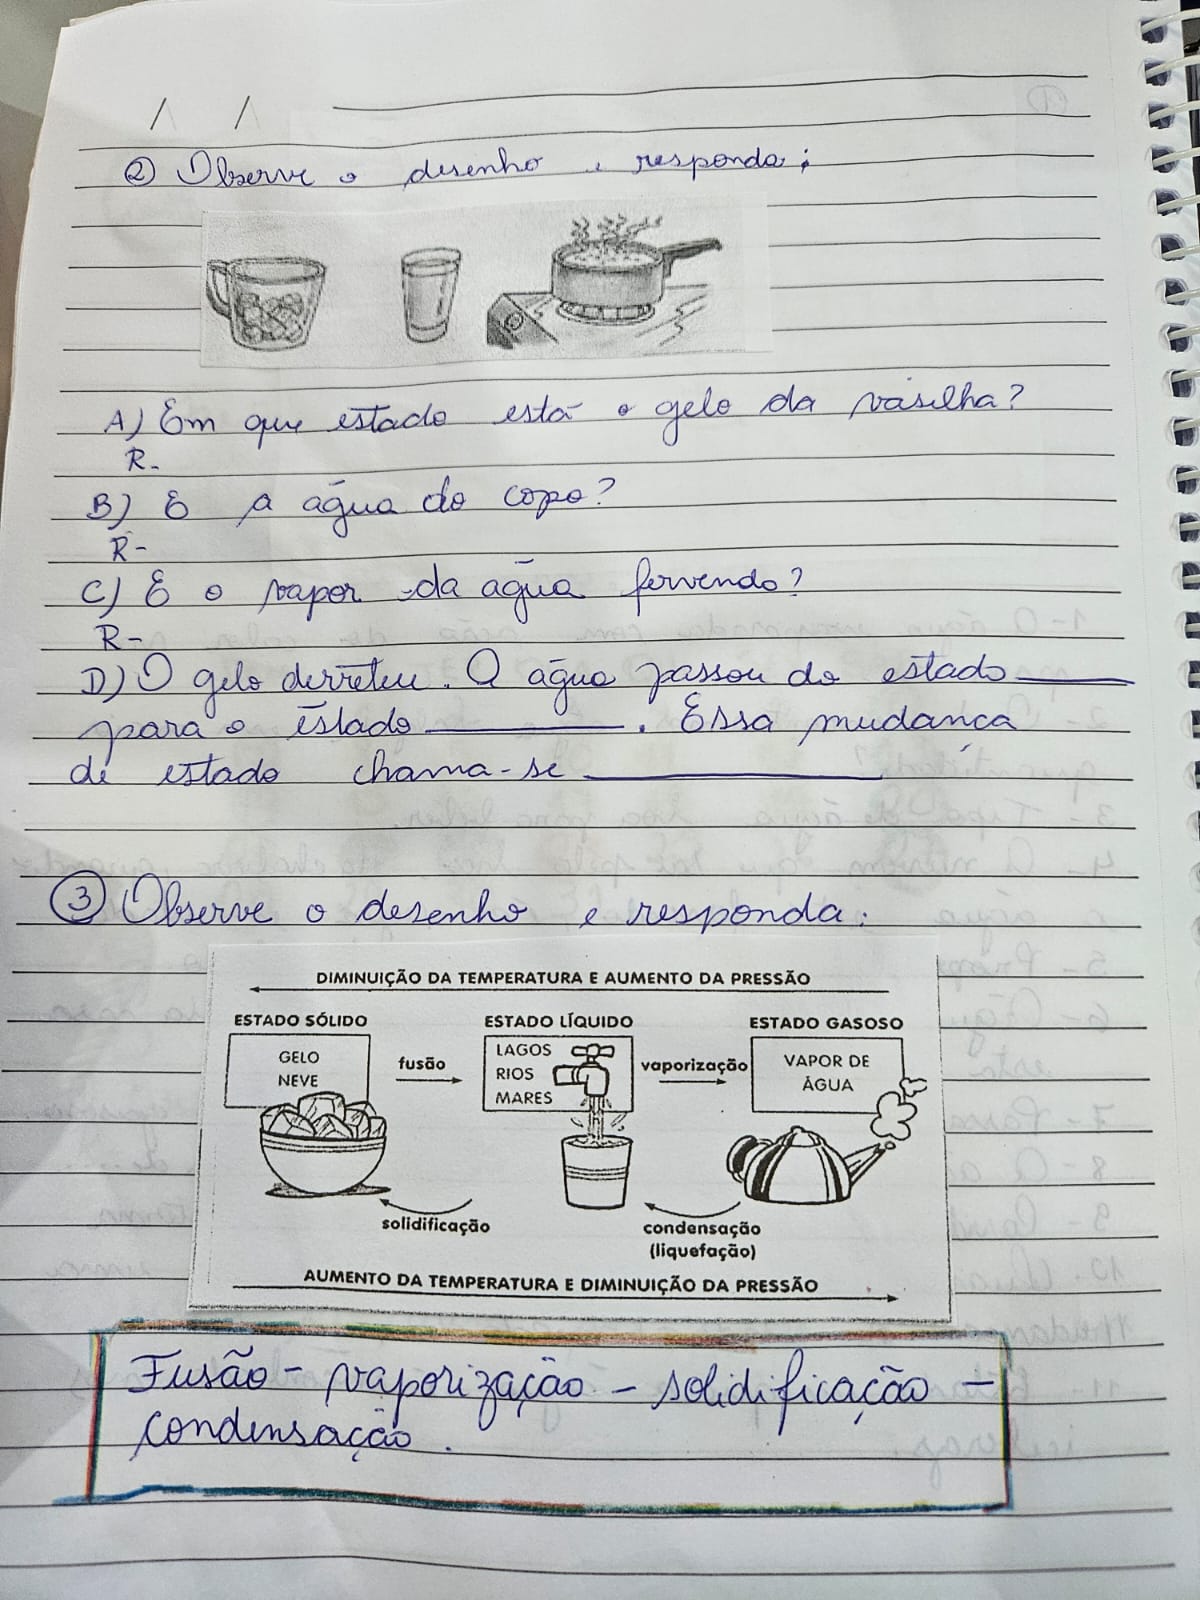 / /
② Observe o desenho e responda:
A) Em que estado está o gelo da vasilha?
R-
B) E a água do copo?
R-
C) E o vapor da água fervendo?
R-
D) O gelo derreteu. A água passou do estado ______
para o estado ______. Essa mudança
de estado chama-se ______
③ Observe o desenho e responda:
DIMINUIÇÃO DA TEMPERATURA E AUMENTO DA PRESSÃO
ESTADO SÓLIDO
GELO
NEVE
fusão
ESTADO LÍQUIDO
LAGOS
RIOS
MARES
vaporização
ESTADO GASOSO
VAPOR DE
ÁGUA
solidificação
condensação
(liquefação)
AUMENTO DA TEMPERATURA E DIMINUIÇÃO DA PRESSÃO
Fusão - vaporização - solidificação -
condensação.